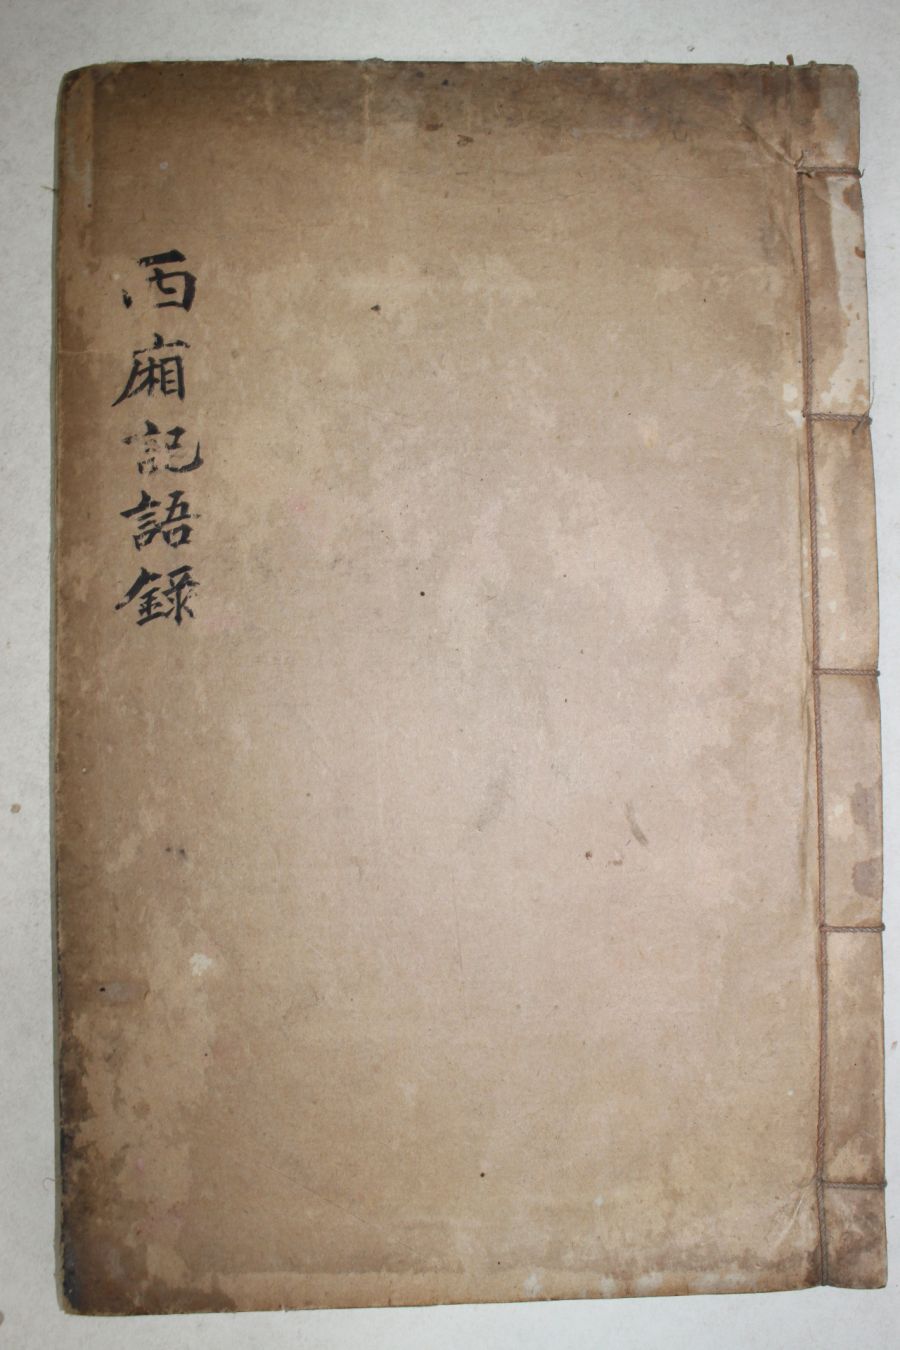 西廂記語錄